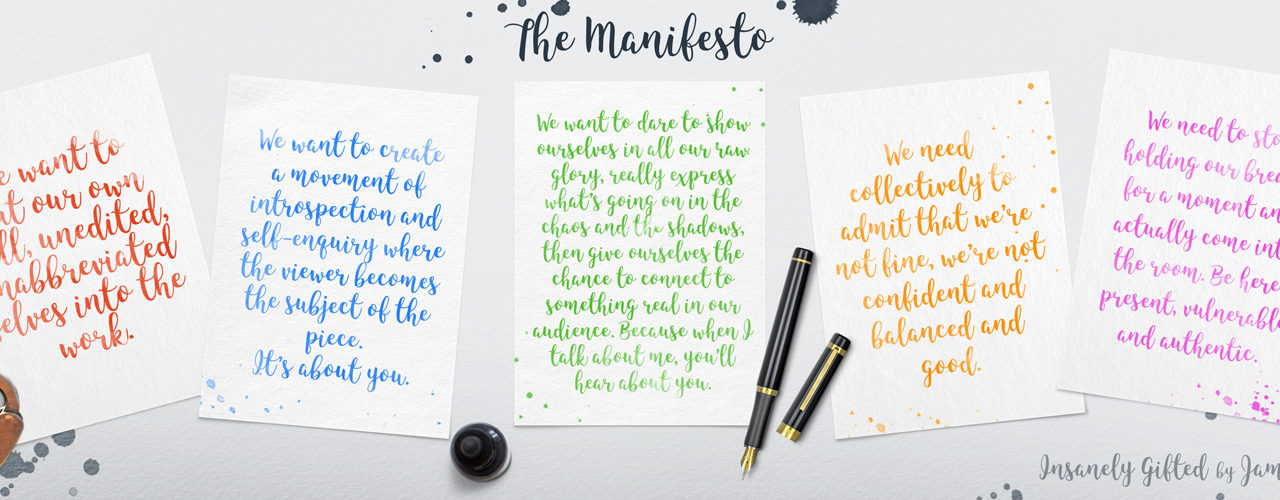 The Manifesto
want to
our own
unedited,
into the
work.
We want to create
a movement of
introspection and
self-enquiry where
the viewer becomes
the subject of the
piece.
It's about you.
We want to dare to show
ourselves in all our raw
glory, really express
what's going on in the
chaos and the shadows,
then give ourselves the
chance to connect to
something real in our
audience. Because when I
talk about me, you'll
hear about you.
We need
collectively to
admit that we're
not fine, we're not
confident and
balanced and
good.
We need to
holding our
for a moment
actually come
the room. Be here
present,
and authentic.
Insanely Gifted by